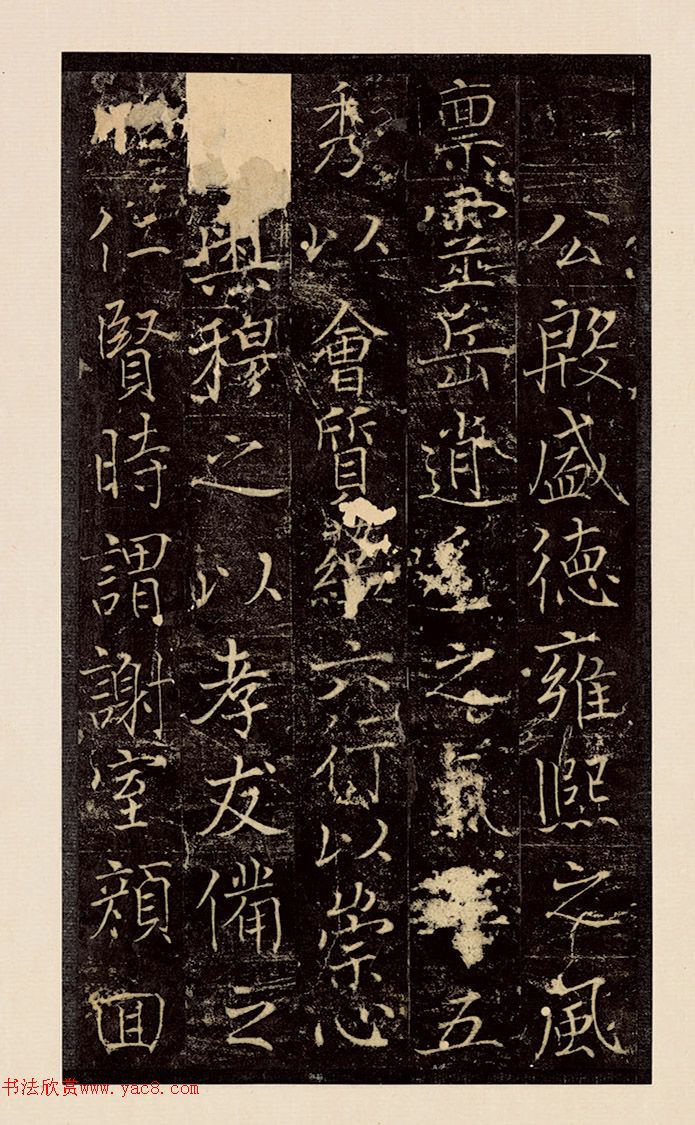 公殷盛德雍熙之風
禀靈岳逍遥之氣五
秀以會質六行以崇心
與穆之以孝友備之
仁賢時謂謝室顏回
书法欣赏www.yac8.com